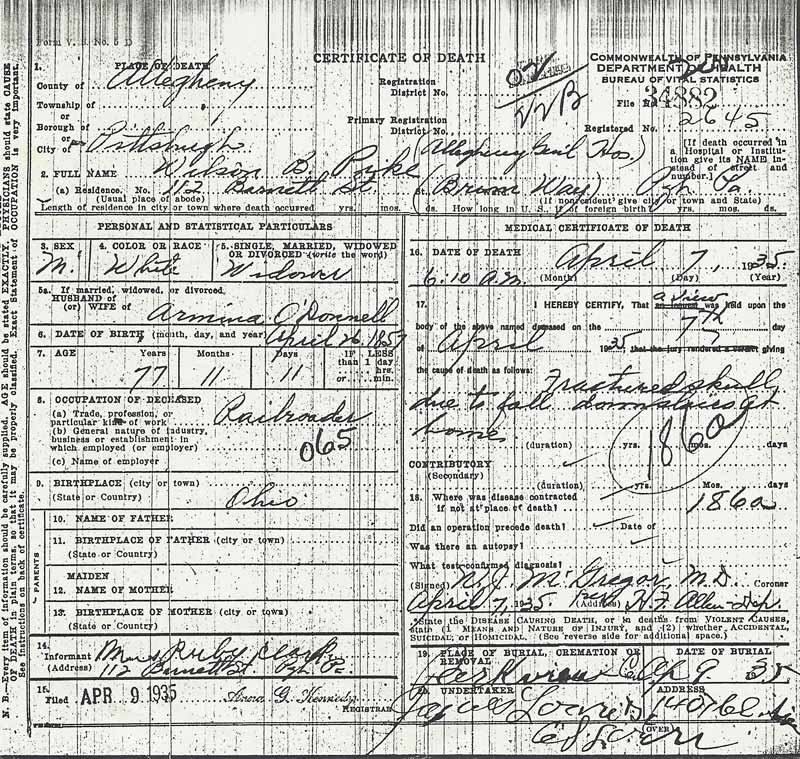 Form V. S. No. 5 D
CERTIFICATE OF DEATH
COMMONWEALTH OF PENNSYLVANIA
DEPARTMENT OF HEALTH
BUREAU OF VITAL STATISTICS
1. PLACE OF DEATH
County of Allegheny
Registration District No.
File No. 34882
Township of
or
Borough of
or
City of Pittsburgh
Primary Registration District No.
Registered No. 2645
(Allegheny Genl Hos.)
[If death occurred in a Hospital or Institution give its NAME instead of street and number.]
2. FULL NAME Wilson B. Pyke
(a) Residence. No. 112 Barnett St. Pgh Pa
(Usual place of abode)
(If nonresident give city or town and State)
Length of residence in city or town where death occurred yrs. mos. ds. How long in U. S., if of foreign birth? yrs. mos. ds.
PERSONAL AND STATISTICAL PARTICULARS
3. SEX M.
4. COLOR OR RACE White
5. SINGLE, MARRIED, WIDOWED OR DIVORCED (write the word) Widower
5a. If married, widowed, or divorced,
HUSBAND of
(or) WIFE of Armina O'Donnell
6. DATE OF BIRTH, (month, day, and year) April 26, 1857
7. AGE Years 77 Months 11 Days 11 IF LESS than 1 day, hrs. or min.
8. OCCUPATION OF DECEASED
(a) Trade, profession, or particular kind of work Railroader
(b) General nature of industry, business or establishment in which employed (or employer) 065
(c) Name of employer
9. BIRTHPLACE (city or town)
(State or Country) Ohio
PARENTS
10. NAME OF FATHER
11. BIRTHPLACE OF FATHER (city or town)
(State or Country)
12. MAIDEN NAME OF MOTHER
13. BIRTHPLACE OF MOTHER (city or town)
(State or Country)
14. Informant Mrs Ruby Clark
(Address) 112 Barnett St Pgh Pa
15. Filed APR 9 1935 Anna G. Kennedy REGISTRAR
MEDICAL CERTIFICATE OF DEATH
16. DATE OF DEATH April 7, 1935
6:10 A.M. (Month) (Day) (Year)
17. I HEREBY CERTIFY, That a view was held upon the
body of the above named deceased on the 7th day
of April 1935 that the jury rendered a verdict giving
the cause of death as follows: Fractured skull,
due to fall downstairs at
home
(duration) yrs. mos. days
186a
CONTRIBUTORY
(Secondary)
(duration) yrs. mos. days
18. Where was disease contracted if not at place of death? 186a
Did an operation precede death? Date of
Was there an autopsy?
What test confirmed diagnosis?
(Signed) McGregor, M.D. Coroner
April 7, 1935 (Address)
*State the DISEASE CAUSING DEATH, or in deaths from VIOLENT CAUSES, state (1) MEANS AND NATURE OF INJURY, and (2) whether ACCIDENTAL, SUICIDAL, or HOMICIDAL. (See reverse side for additional space.)
19. PLACE OF BURIAL, CREMATION OR REMOVAL
DATE OF BURIAL Ap 9 35
20. UNDERTAKER
ADDRESS
(OVER)
N. B.—Every item of information should be carefully supplied. AGE should be stated EXACTLY. PHYSICIANS should state CAUSE OF DEATH in plain terms, so that it may be properly classified. Exact Statement of OCCUPATION is very important. See instructions on back of certificate.